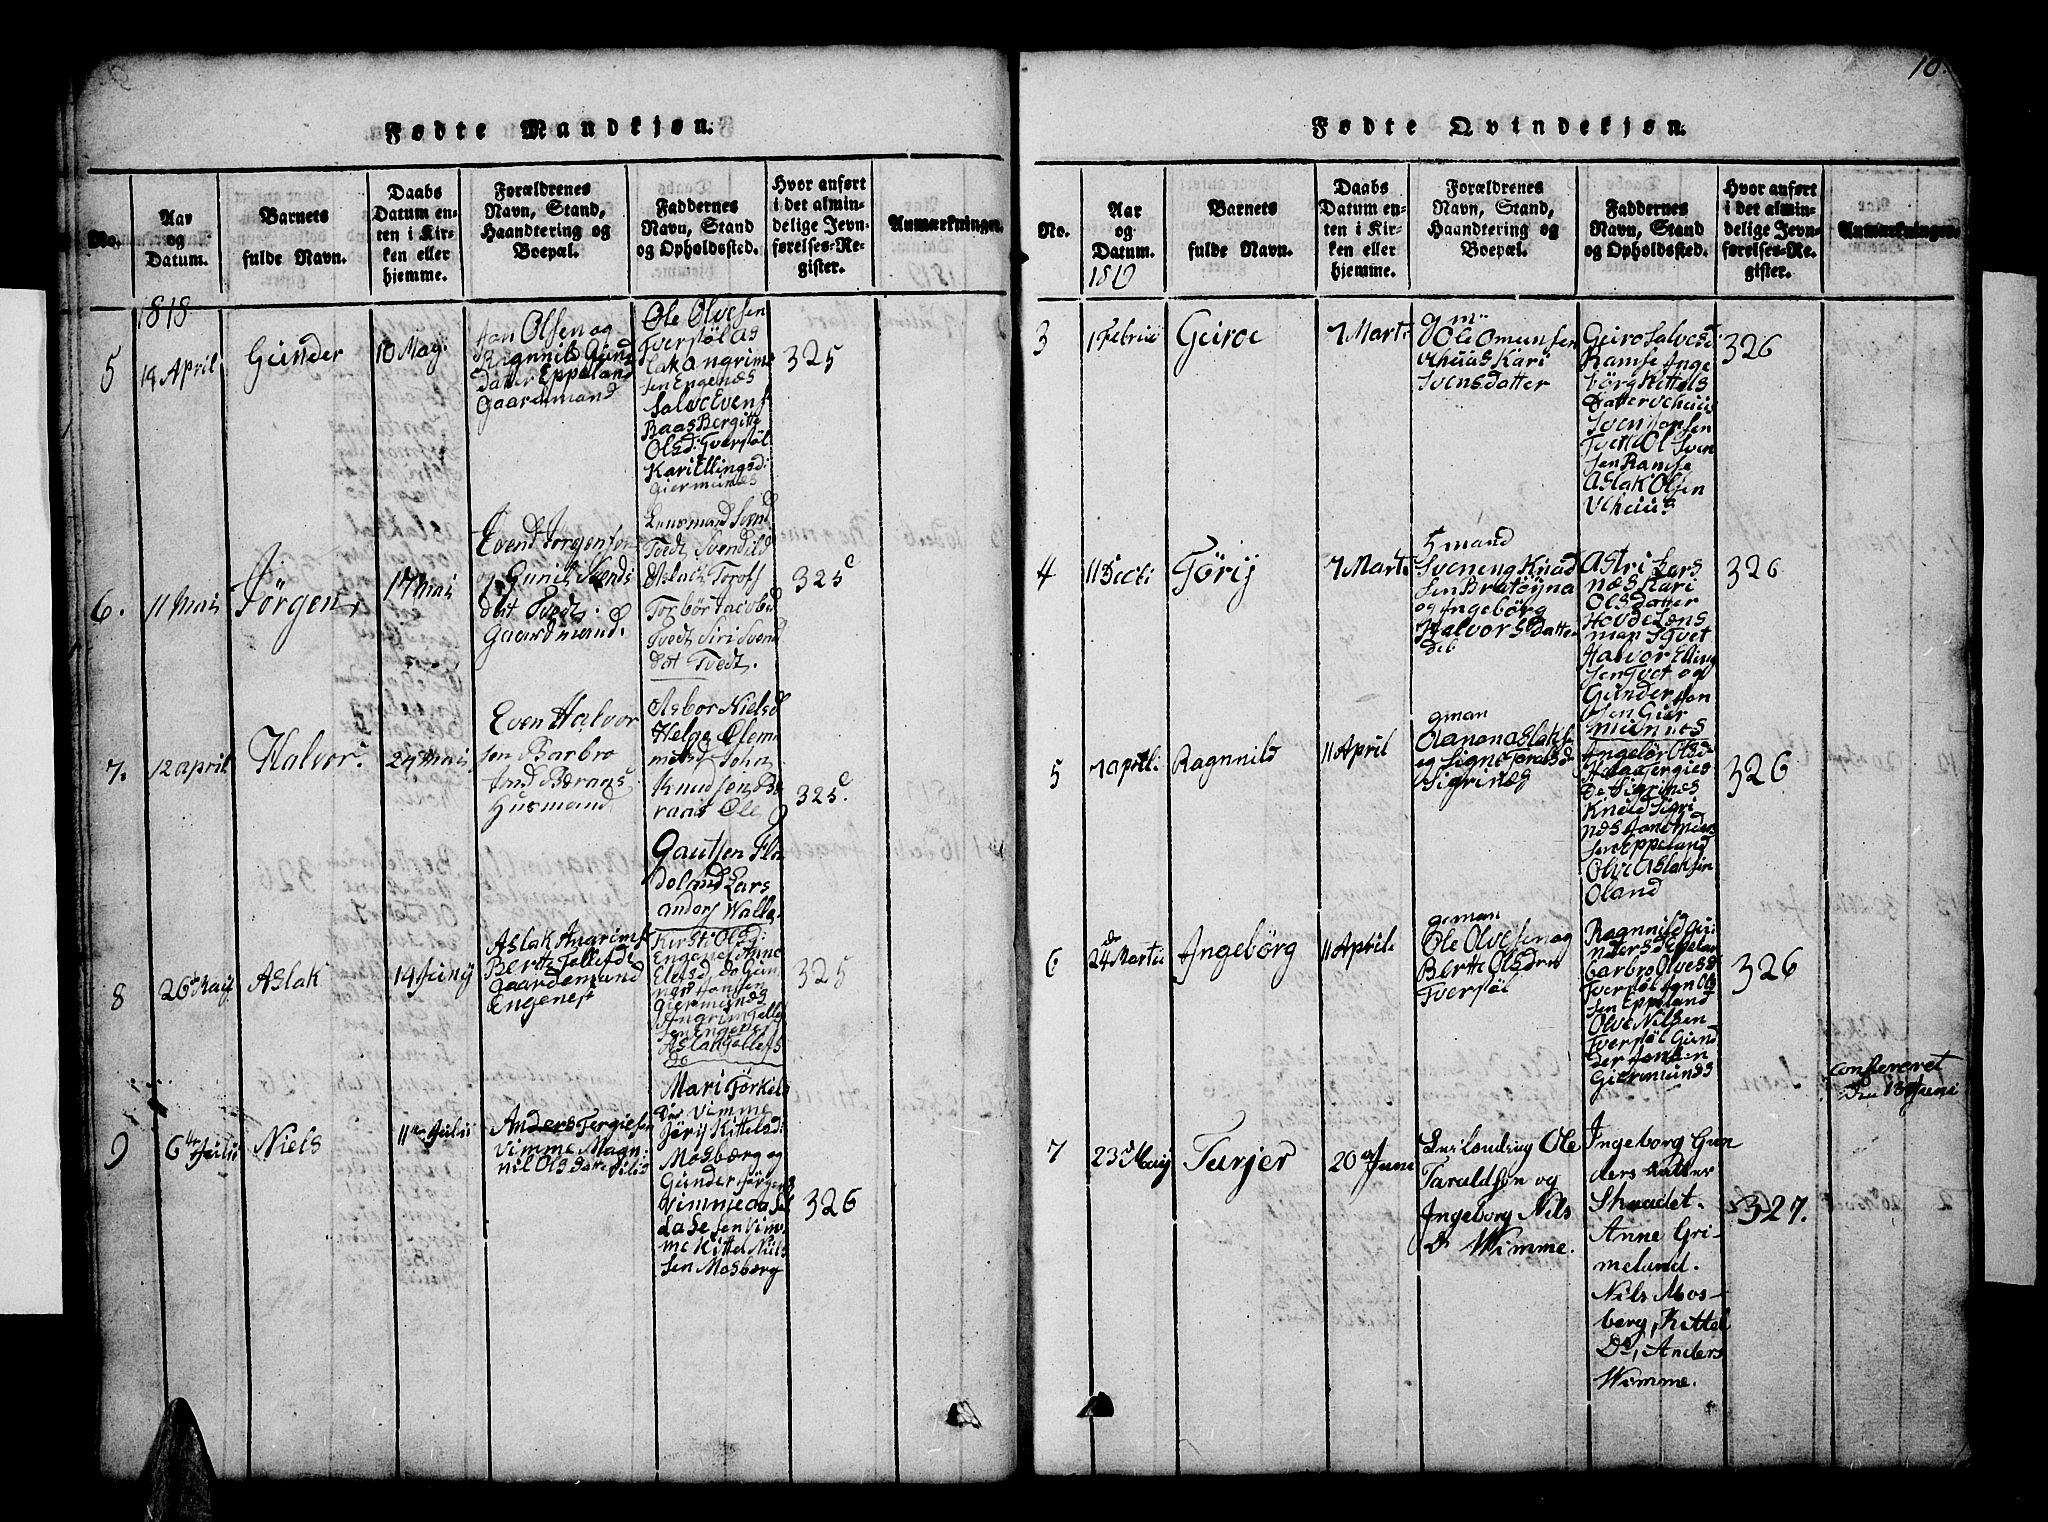 10.
Fødte Mandkjøn.
No.
Aar
og
Datum.
Barnets
fulde Navn.
Daabs
Datum en-
ten i Kir-
ken eller
hjemme.
Forældrenes
Navn, Stand,
Haandtering og
Boepæl.
Faddernes
Navn, Stand
og Opholdssted.
Hvor anført
i det almin-
delige Jevn-
førelses-Re-
gister.
Anmærkninger.
1818
5
14 April
Gunder
10 Maj
Jon Olsen og
Ragnnild Gund
Datter Eppeland
Gaardmand
Ole Olvesen
Tversøl As
lak Angrim
sen Engenes
Salve Evens
Baas Bergitte
Olsd: Tversøl
Kari Ellingsd:
Giermunes
325
6.
11 Mai
Jörgen
17 Mai
Evend Jorgenson
og Gunil Svends
dat Tvedt.
Gaardmand.
Lensmand Svend
Tvedt Svenild
Aslach Torofs
Torbör Jacobsd
Tvedt Siri Svend
dat Tvedt.
325
7.
12 april
Halvor
24 Mai
Even Halvor
sen Barbro
Husmand
Asbor Nielsd
Helge Olem
John
Knudsen
Ole
Gautsen
doland Lars
anders Walle
325
8
26 Maij
Aslak
14 Junij
Aslak Angrims
Berte Tollefsd
Gaardemand
Engenes
Kirsti Olsd:
Engenes Anne
Elefsd do Gun
ner Jonsen
Giermunds
Angrim Jelles
sen Engenes
Aslak Jellefs
do
325
9
6te Julii
Niels
11te Julii
Anders Tergiesen
Vimme Magn
nil Olsdatter
Mari Törkels
Dtr Vimme
Jörij Kittelsd:
Mosbærg og
Gunder Jörgens
Vimme Aase
Lasesen Vim
me Kittel Niels
sen Mosbærg
326
Fødte Qvindekjøn.
No.
Aar
og
Datum.
Barnets
fulde Navn.
Daabs
Datum en-
ten i Kir-
ken eller
hjemme.
Forældrenes
Navn, Stand,
Haandtering og
Boepæl.
Faddernes
Navn, Stand
og Opholdssted.
Hvor anført
i det almin-
delige Jevn-
førelses-Re-
gister.
Anmærkninger.
1819
3
1 Febrii
Geiroe
7 Marti
g m
Ole Omunsen
Uhuus Kari
Svensdatter
Geiro Salvesd
Ramse Inge
börg Kittels
Datter Uehuus
Sven Jonsen
Tvett Ol Sven
sen Ramse
Aslak Olsen
Uehuus.
326
4
11 Decbi
Törij
7 Marti
5 mand
Svening Knud
sen Bratöyna
og Ingebörg
Halvorsdatter
Astri Lars
næs Kari
Olsdatter
Hovde Lens
man S Tvet
Halvor Elling
sen Tvet og
Gunder Jon
sen Gier
munnes
326
5
7 aprili
Ragnnild
11 April
gman
Olanon Aslaks
og Signe Toralsd
Sigrinæs
Ingebör Olsd
Aaga Jergies
De Sigrinæs
Knud Sigri
næs Jon
sen Eppeland
Olve Aslaksen
Oland
326
6
24de Martii
Ingebörg
11 Aprili
geman
Ole Olvesen og
Berte Olsdtr
Tversøl
Ragnnild Gun
ders d Epelan
barbro Olvesd
Tversøl Jon Ol
sen Eppeland
Olve Nilsen
Tversøl Gund
der Jonsen
Giermunds
326
7
23d Maij
Turjer
20de Juni
Ole
Taraldsøn og
Ingeborg Nils
D. Wimme.
Ingeborg Gun
ders datter
Skaadet.
Anne Gri-
meland.
Nils Mos-
berg, Kittel
Do, Anders
Wimme.
327.
Confereret
Den 13 Juni